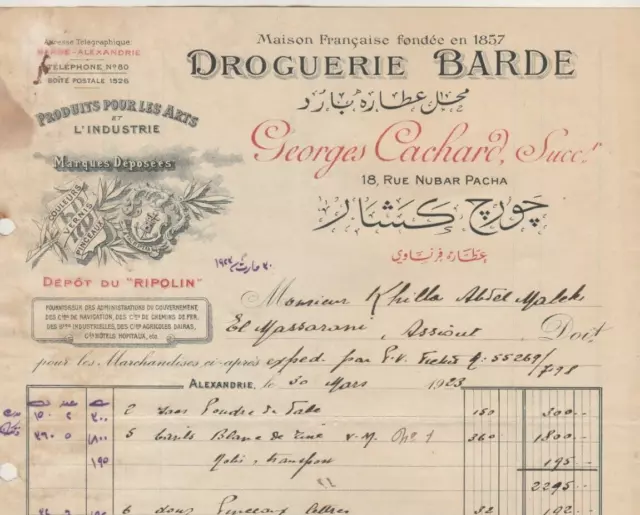 Adresse Télégraphique:
BARDE-ALEXANDRIE
TÉLÉPHONE Nº 80
BOÎTE POSTALE 1526
Maison Française fondée en 1857
DROGUERIE BARDE
محل عطارة بارد
PRODUITS POUR LES ARTS
ET
L'INDUSTRIE
Georges Cachard, Succ.r
Marques Déposées
18, RUE NUBAR PACHA
جورج كشار
COULEURS
VERNIS
PINCEAUX
عطارة فرنساوي
DÉPÔT DU "RIPOLIN"
FOURNISSEUR DES ADMINISTRATIONS DU GOUVERNEMENT
DES CIES DE NAVIGATION, DES CIES DE CHEMINS DE FER,
DES STÉS INDUSTRIELLES, DES CIES AGRICOLES DAIRAS,
CES HÔTELS HOPITAUX, etc
Monsieur Khilla Abdel Malek
El Massarani, Assiout, Doit
pour les Marchandises ci-après expéd. par G.V. 55269/798
ALEXANDRIE, le 30 Mars 1923
١٥٠ ٢ ٣٠٠ 2 sacs Poudre de Talc 150 300
٣٦٠ ٥ ١٨٠٠ 5 barils Blanc de Zinc V.M. Nº 1 360 1800
١٩٥ transport 195
2295
6 douz Pinceaux 32 192